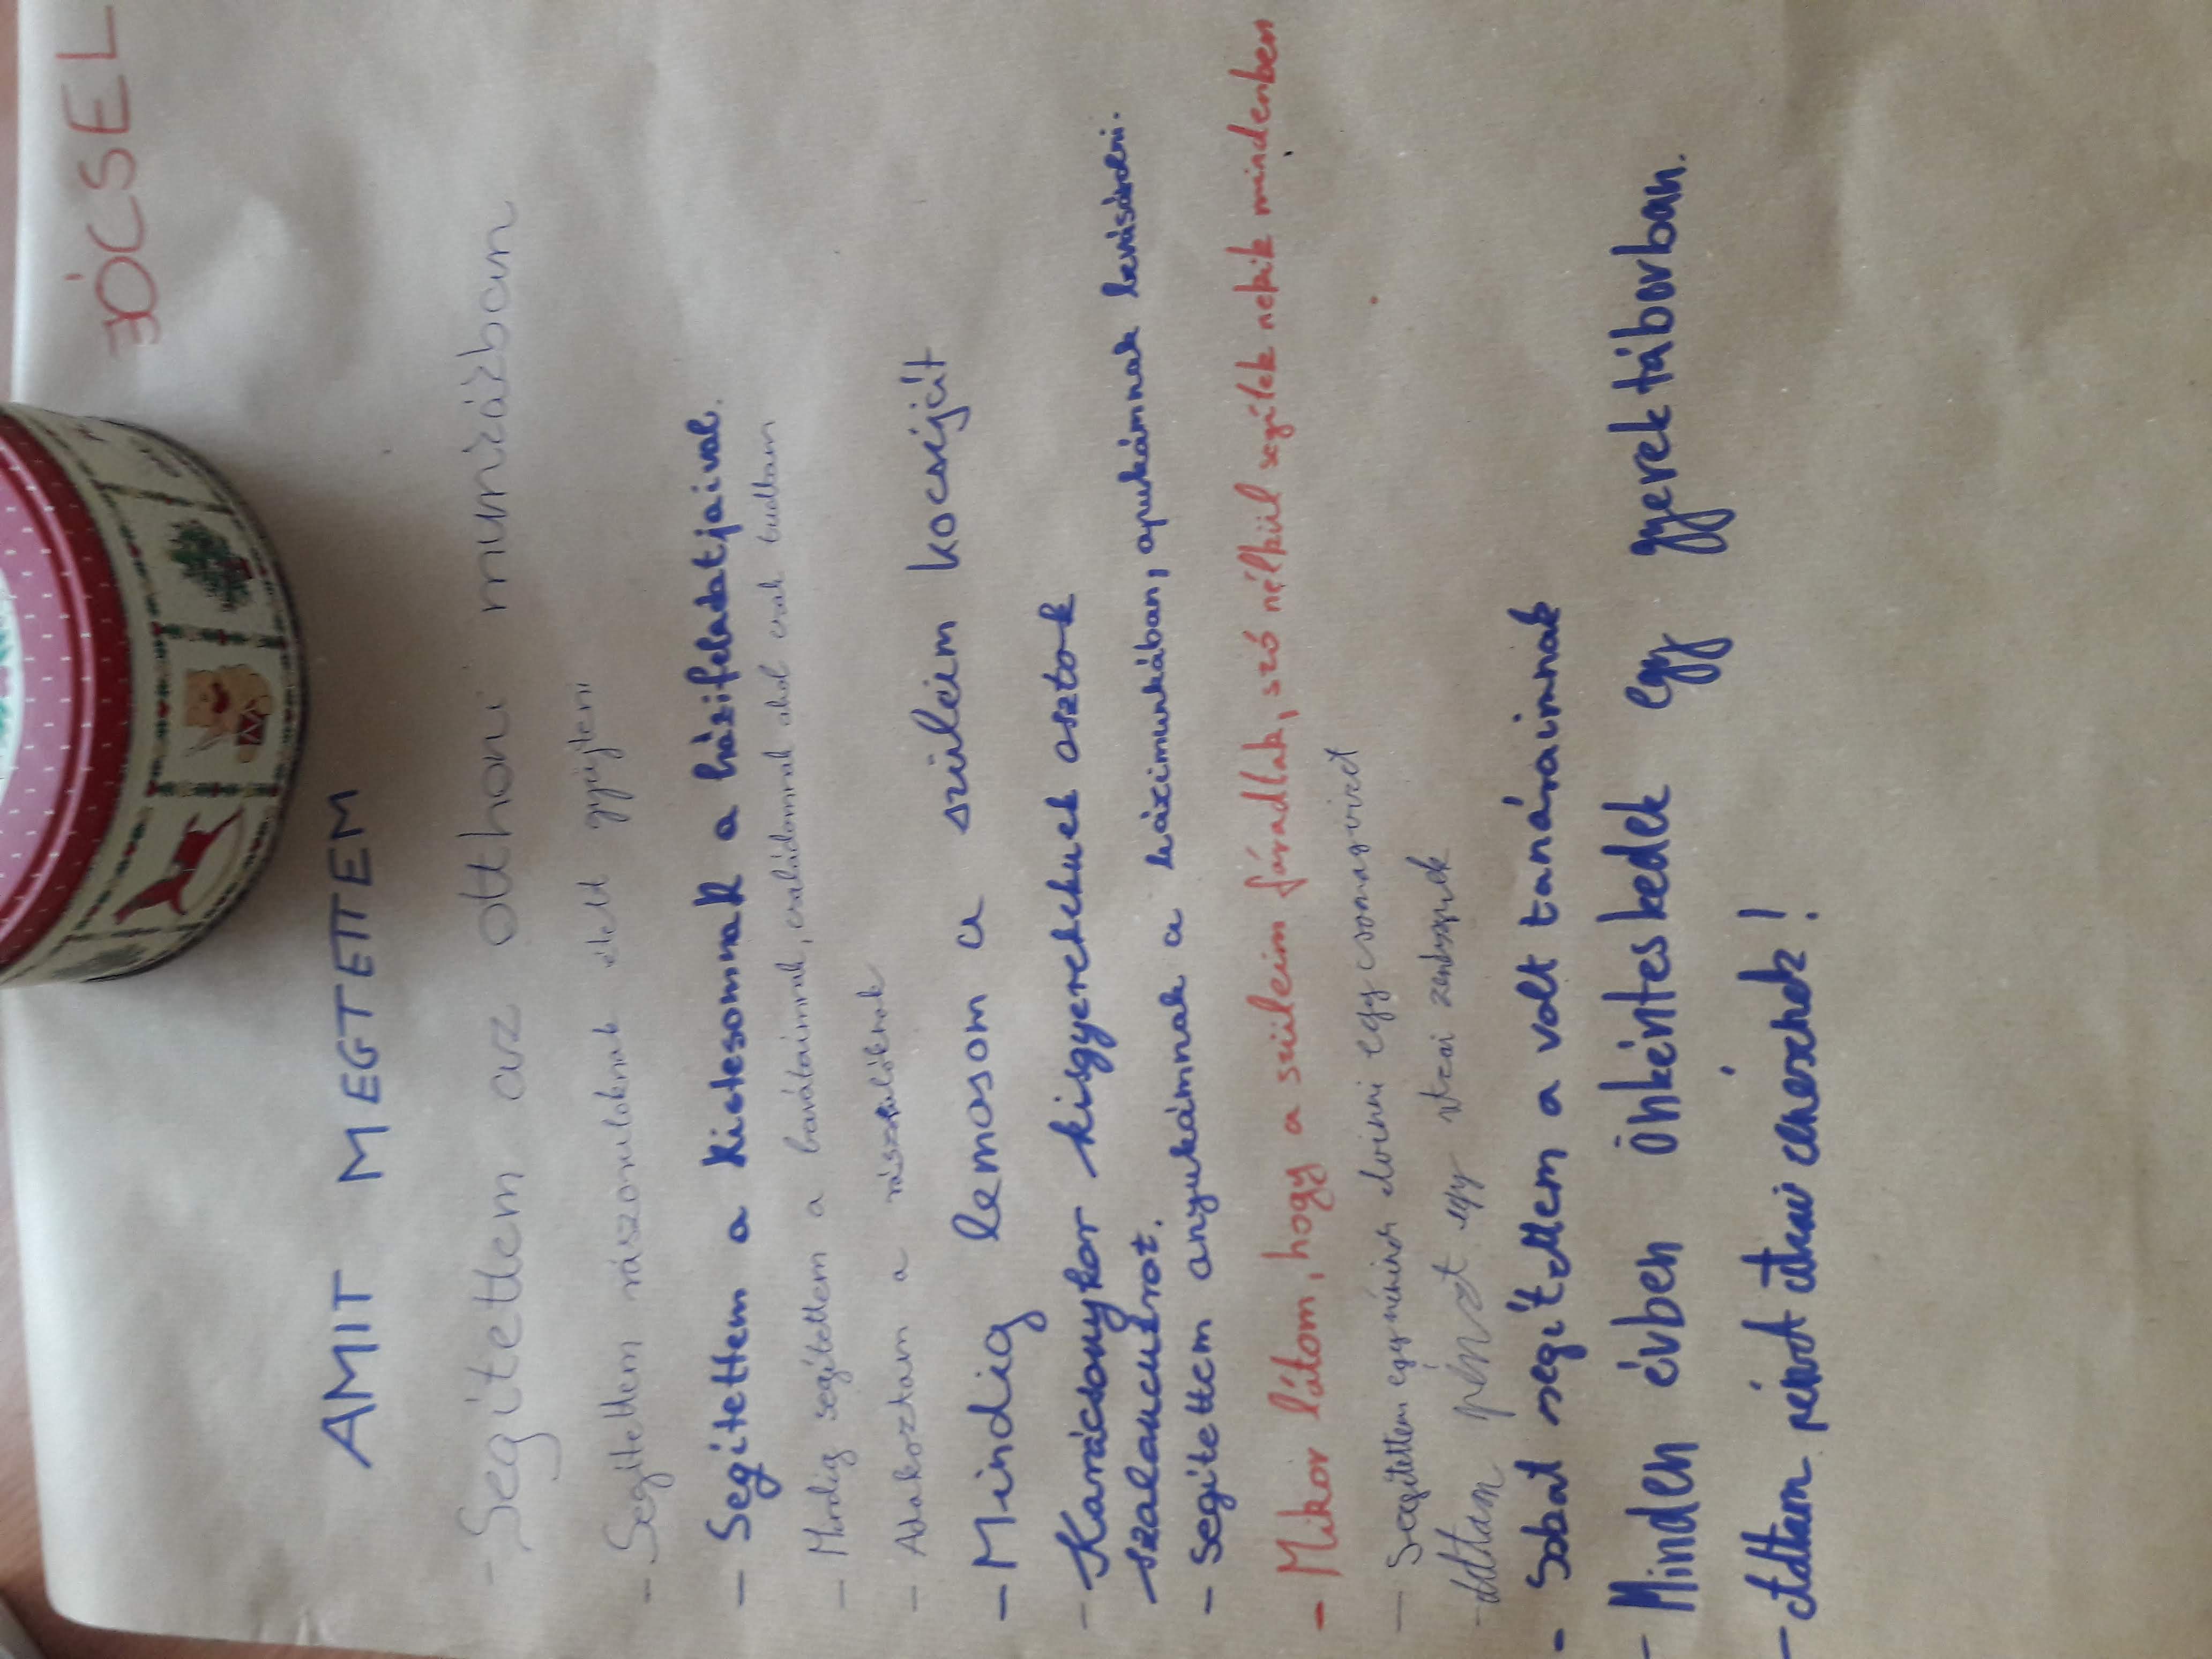 JÓCSEL
AMIT MEGTETTEM
- Segítettem az otthoni munkában
- Segítettem rászorulóknak ételt gyűjteni
- Segítettem a kistesomnak a házifeladatjaival.
- Mindig segítettem a barátaimnak, családomnak ahol csak tudtam
- Adakoztam a rászorulóknak
- Mindig lemosom a szüleim kocsiját
- Karácsonykor kisgyerekeknek osztok
szaloncukrot.
- Segítettem anyukámnak a házimunkában, apukámnak bevásárolni.
- Mikor látom, hogy a szüleim fáradtak, szó nélkül segítek nekik mindenben
- Segítettem egy néninek elvinni egy csomag vizet
- Adtam pénzt egy utcai zenésznek
- Sokat segítettem a volt tanáraimnak
- Minden évben önkénteskedek egy gyerektáborban.
- Adtam pénzt utcai zenésznek!